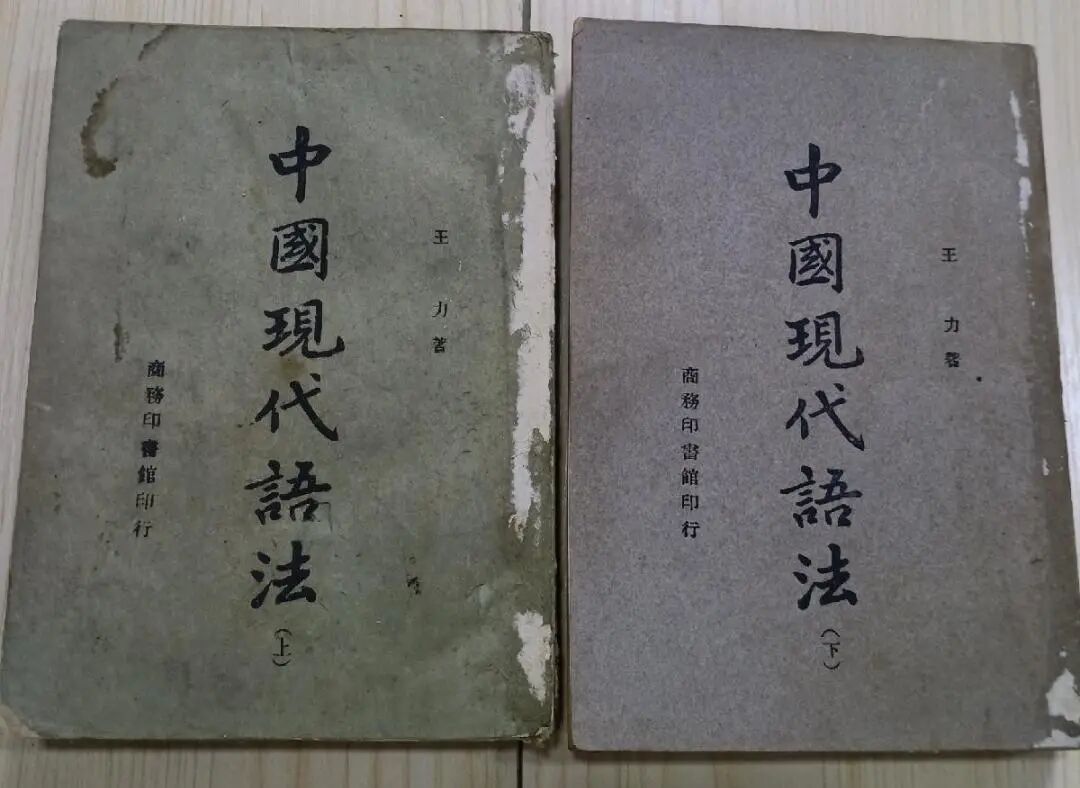 王力著
中國現代語法
(上)
商務印書館印行
王力著
中國現代語法
(下)
商務印書館印行